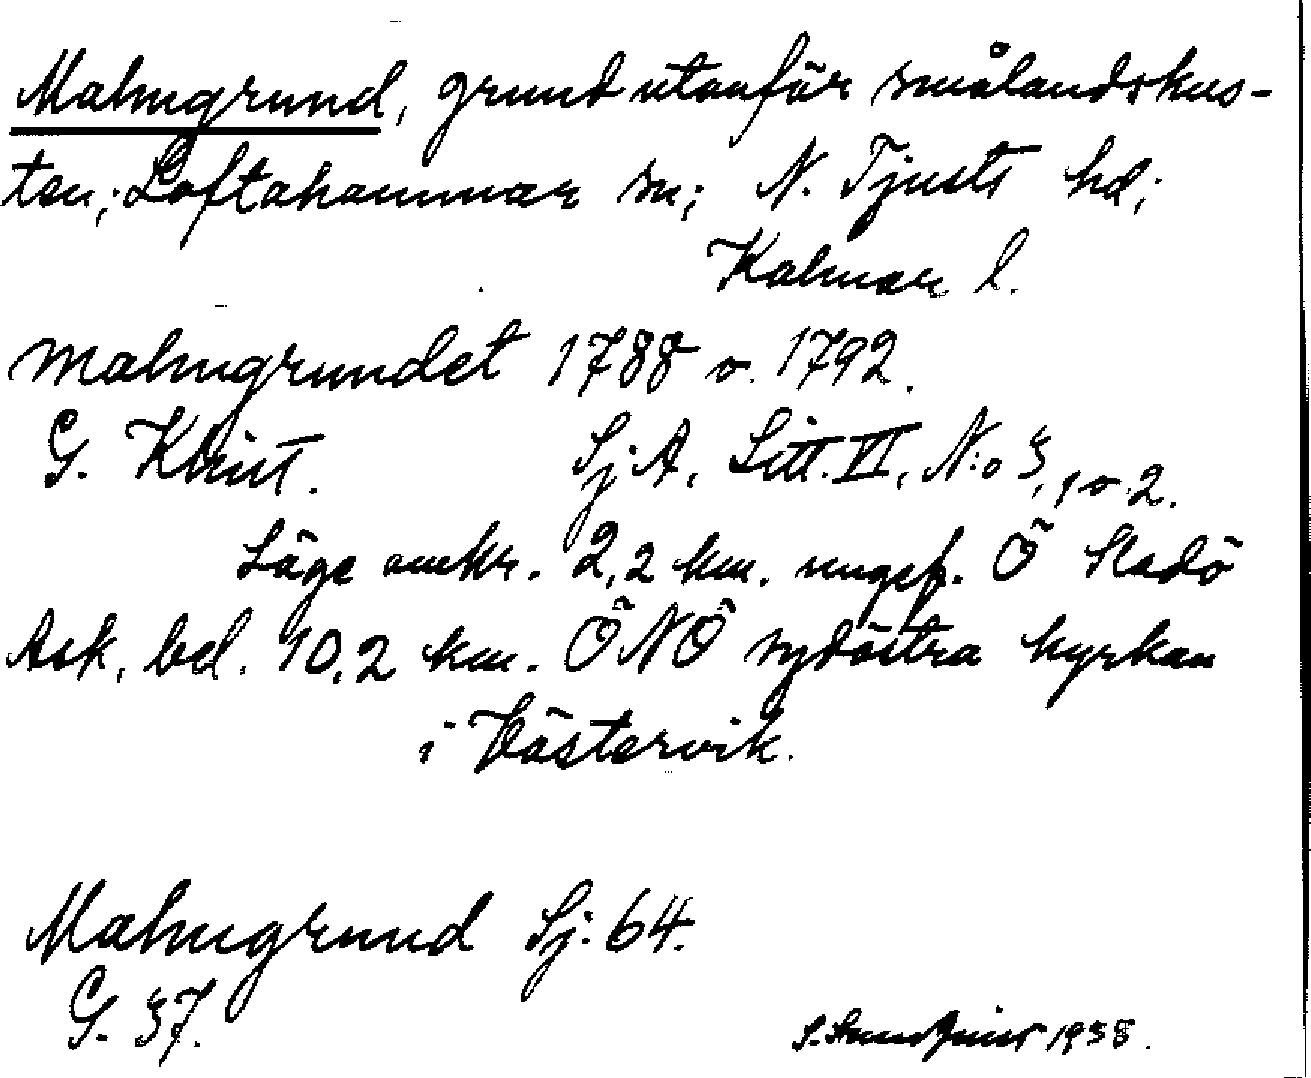 Malmgrund, grund utanför smålandskus-
ten; Loftahammar sn; N. Tjusts hd;
Kalmar l.
Malmgrundet 1788 o. 1792.
G. Klint. SjA, Litt. VI, N:o 3, 1 o 2.
Läge omkr. 2,2 km. ungef. Ö Sladö
Ask, bel. 10,2 km. ÖNÖ sydöstra kyrkan
i Västervik.
Malmgrund Sj: 64.
G. 37.
S. 1938.